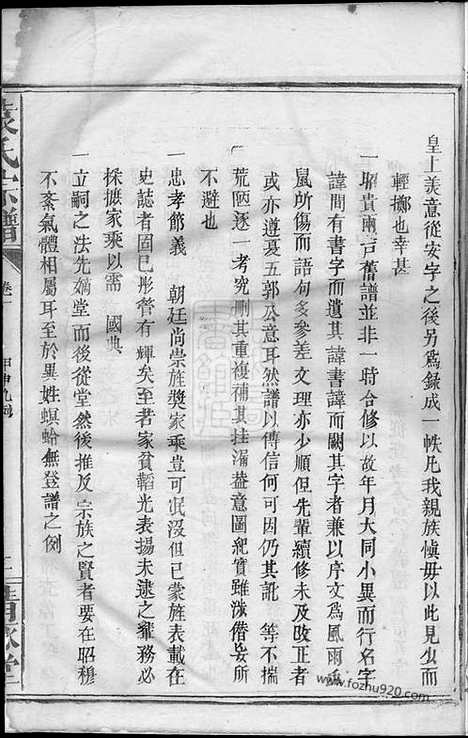 皇上美意從安字之後另為錄成一帙凡我親族慎毋以此見少而
輕擲也幸甚
一昭貴兩戶舊譜並非一時合修以故年月大同小異而行名字
諱間有書字而遺其諱書諱而闕其字者兼以序文為風雨
鼠所傷而語句多參差文理亦少順但先輩續修未及改正者
或亦遵夏五郭公意耳然譜以傳信何可因仍其訛 等不揣
荒陋逐一考究刪其重複補其挂漏葢意圖紀實雖涉僭妄所
不避也
一忠孝節義 朝廷尚崇旌獎家乘豈可泯沒但已蒙旌表載在
史誌者固已彤管有輝矣至若家貧韜光表揚未逮之輩務必
採摭家乘以需 國典
一立嗣之法先嫡堂而後從堂然後推及宗族之賢者要在昭穆
不紊氣體相屬耳至於異姓螟蛉無登譜之例
袁氏宗譜
卷
www.fozhu920.com